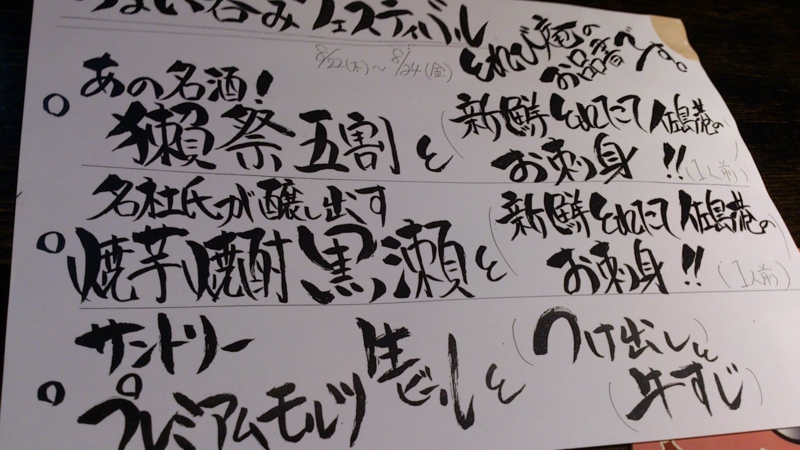 うまい呑みフェスティバル
8/22(木)～8/24(金)
とれび庵の
お品書です。
あの名酒!
獺祭五割と(新鮮とれたて佐島港の
お刺身!!(1人前)
名杜氏が醸し出す
焼芋焼酎黒瀬と(新鮮とれたて佐島港の
お刺身!!(1人前)
サントリー
プレミアムモルツ生ビールと(つけ出しと
(牛すじ)